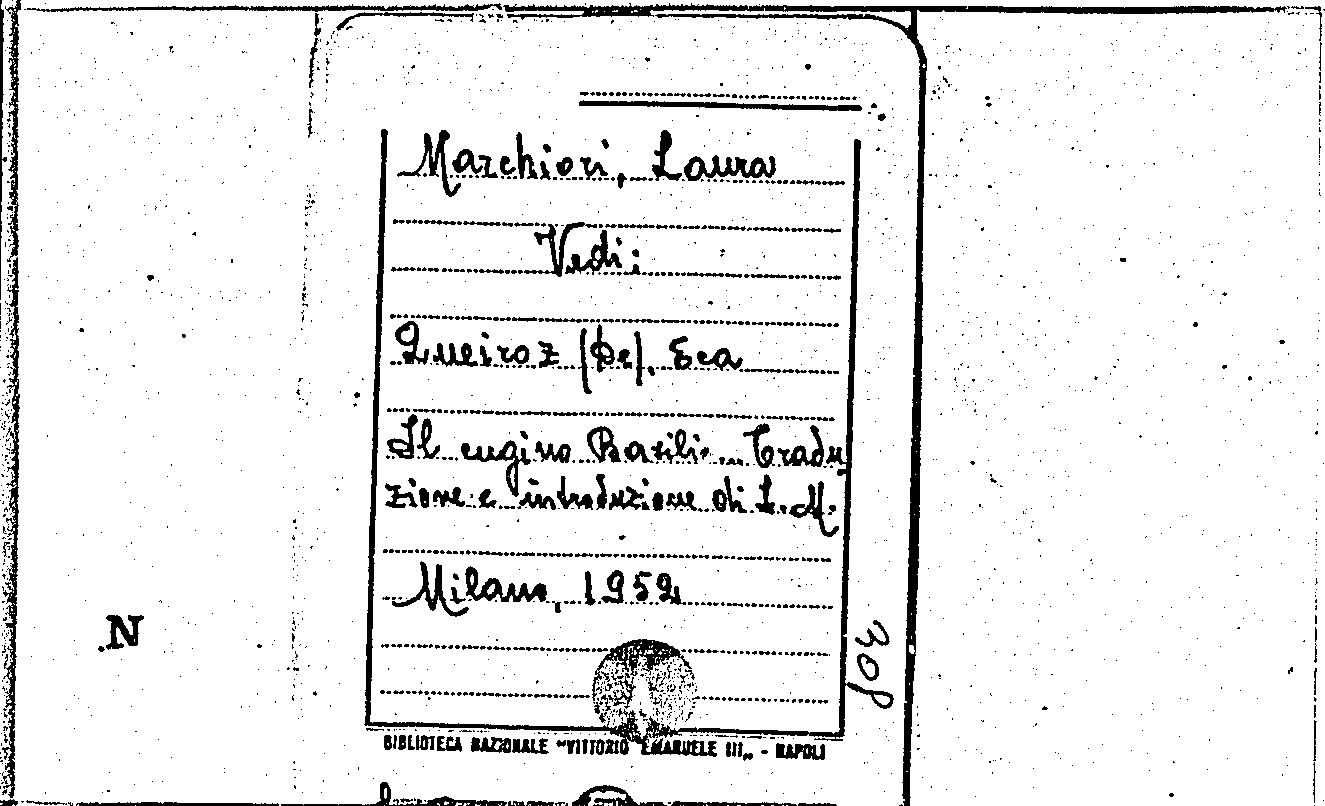 Marchiori, Laura
Vedi:
Queiroz (De), Eca
Il cugino Basilio... Tradu-
zione e introduzione di L. M.
Milano, 1952
308
N
BIBLIOTECA NAZIONALE "VITTORIO EMANUELE III„ - NAPOLI